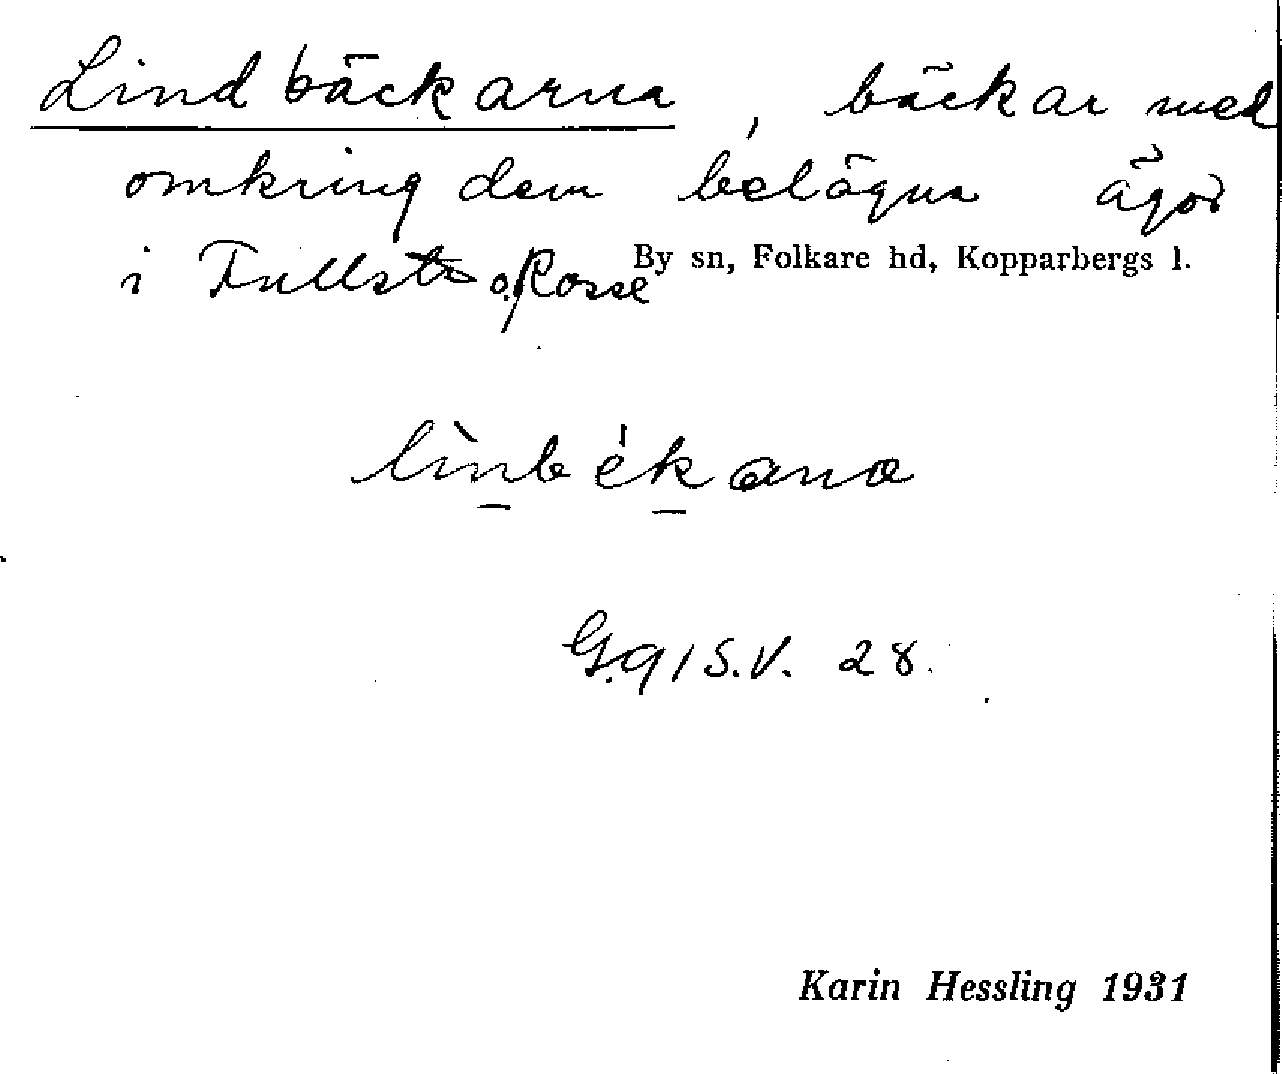 Lindbäckarna, bäckar med
omkring dem belägna ägor
i Fullsta o. Rosse By sn, Folkare hd, Kopparbergs l.
lìnbékana
G.91 S.V. 28.
Karin Hessling 1931